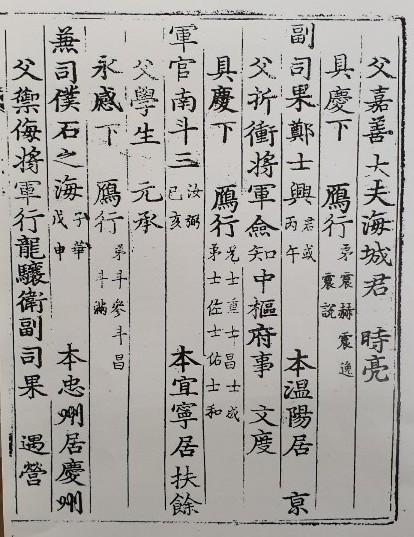 父嘉善大夫海城君 時亮
具慶下 鴈行 弟震赫震逸 震說
副司果鄭士興 君或 丙午 本溫陽居 京
父折衝將軍僉知中樞府事 文度
具慶下 鴈行 兄士重士昌士成 弟士佐士佑士和
軍官南斗三 汝弼 己亥 本宜寧居扶餘
父學生 元承
永感下 鴈行 弟斗參斗昌 斗滿
兼司僕石之海 子華 戊申 本忠州居慶州
父禦侮將軍行龍驤衛副司果 遇營